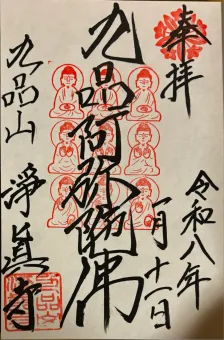 奉拝
令和八年
一月十一日
九品阿弥陀佛
九品山 淨真寺